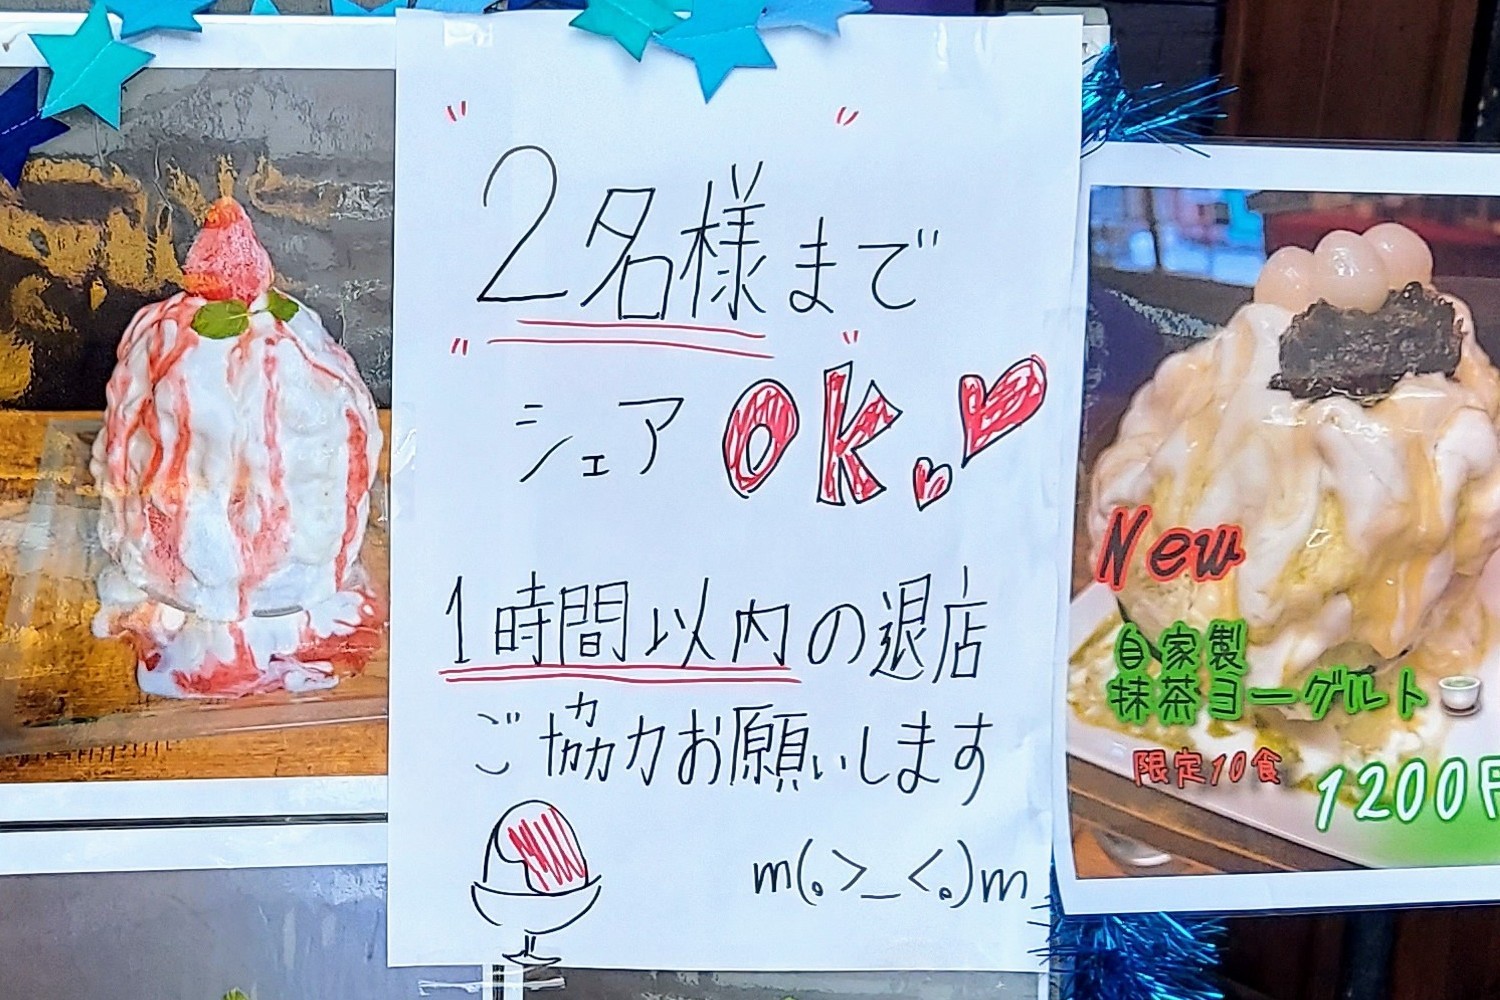 2名様まで
シェアOK
1時間以内の退店
ご協力お願いします
m(。>_<。)m
New
自家製
抹茶ヨーグルト
限定10食
1200円